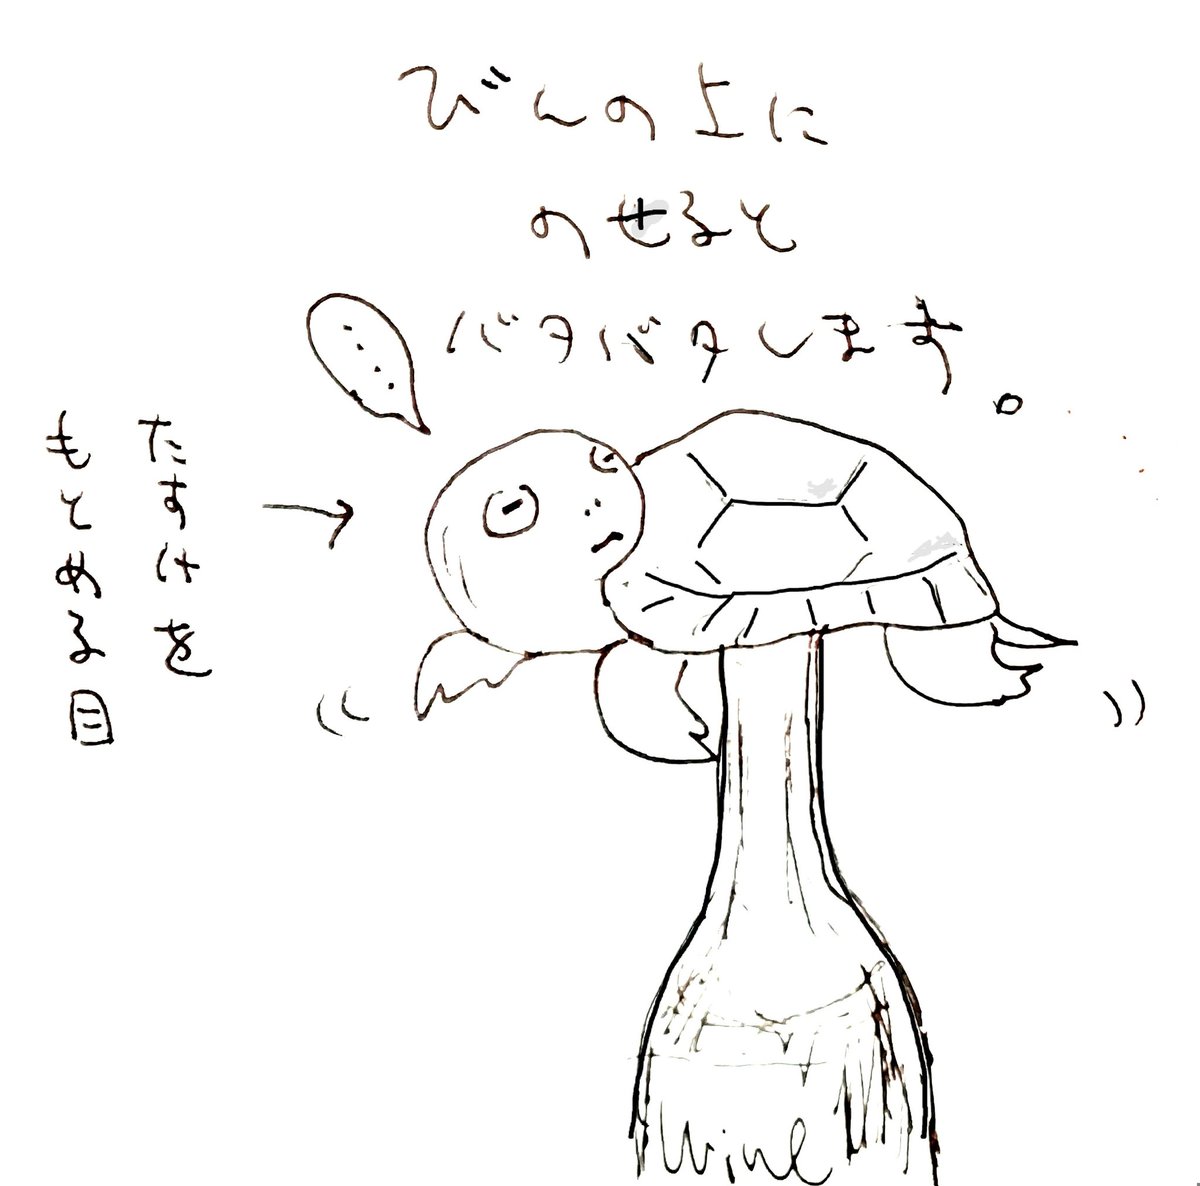 びんの上に
のせると
バタバタします。
たすけを
もとめる目
wine